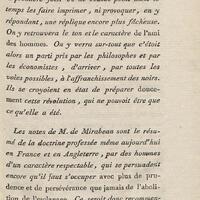 temps les faire imprimer, ni provoquer, en y
répondant, une réplique encore plus fâcheuse.
On y retrouvera le ton et le caractère de l'ami
des hommes. On y verra sur-tout que c'étoit
alors un parti pris par les philosophes et par
les économistes, d'arriver, par toutes les
voles possibles, à l'affranchissement des noirs.
Ils se croyoient en état de préparer douce-
ment cette révolution, qui ne pouvoit être que
ce qu'elle a été.
Les notes de M. de Mirabeau sont le résu-
mé de la doctrine professée même aujourd'hui
en France et en Angleterre, par des hommes
d'un caractère respectable, qui se persuadent
encore qu'il faut s'occuper avec plus de pru-
dence et de persévérance que jamais de l'aboli-
tion de l'esclavage. Ce seroit donc recommen-